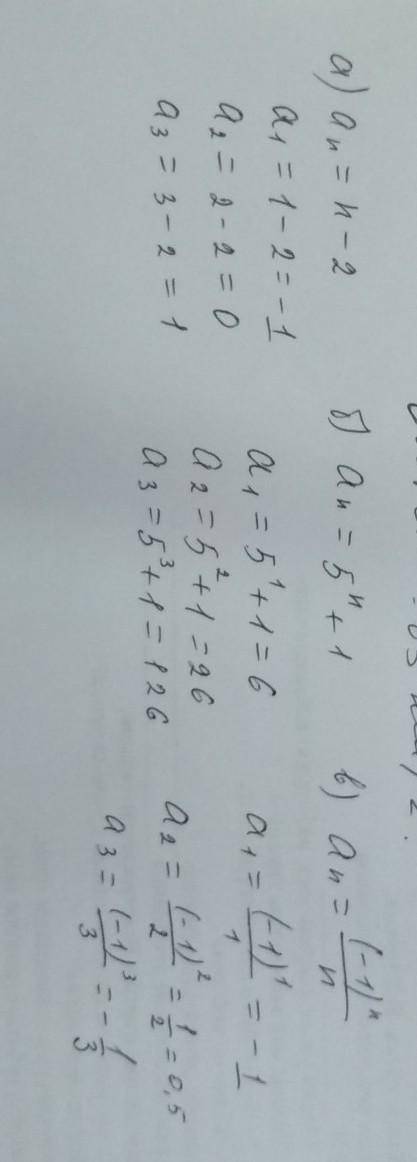 а) aₙ = n - 2
a₁ = 1 - 2 = -1
a₂ = 2 - 2 = 0
a₃ = 3 - 2 = 1
б) aₙ = 5ⁿ + 1
a₁ = 5¹ + 1 = 6
a₂ = 5² + 1 = 26
a₃ = 5³ + 1 = 126
в) aₙ = (-1)ⁿ/n
a₁ = (-1)¹/1 = -1
a₂ = (-1)²/2 = 1/2 = 0,5
a₃ = (-1)³/3 = -1/3